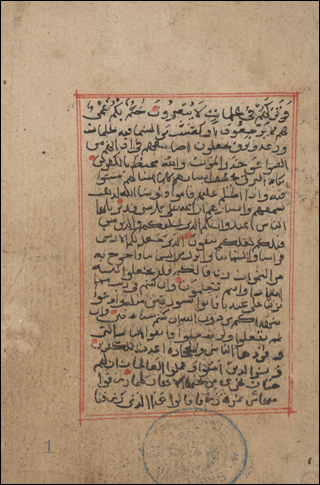 وتركهم في ظلمات لا يبصرون صم بكم عمي
فهم لا يرجعون او كصيب من السماء فيه ظلمات
ورعد وبرق يجعلون اصابعهم في اذانهم من
الصواعق حذر الموت والله محيط بالكافرين
يكاد البرق يخطف ابصارهم كلما اضاء لهم مشوا
فيه واذا اظلم عليهم قاموا ولو شاء الله لذهب
بسمعهم وابصارهم ان الله على كل شي قدير يا ايها
الناس اعبدوا ربكم الذي خلقكم والذين من
قبلكم لعلكم تتقون الذي جعل لكم الارض
فراشا والسماء بناء وانزل من السماء ماء فاخرج به
من الثمرات رزقا لكم فلا تجعلوا لله
اندادا وانتم تعلمون وان كنتم في ريب مما
نزلنا على عبدنا فاتوا بسورة من مثله وادعوا
شهداءكم من دون الله ان كنتم صادقين فان
لم تفعلوا ولن تفعلوا فاتقوا النار التي
وقودها الناس والحجارة اعدت للكافرين
وبشر الذين امنوا وعملوا الصالحات ان لهم
جنات تجري من تحتها الانهار كلما رزقوا
منها من ثمرة رزقا قالوا هذا الذي رزقنا
1